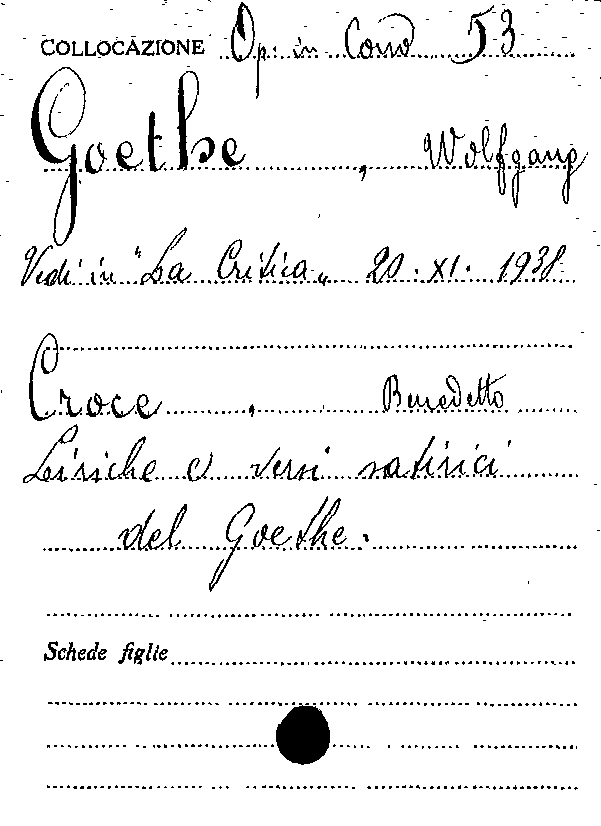 COLLOCAZIONE Op. in Corso 53
Goethe, Wolfgang
Vedi in "La Critica„ 20. XI. 1938.
Croce, Benedetto
Liriche e versi satirici
del Goethe.
Schede figlie